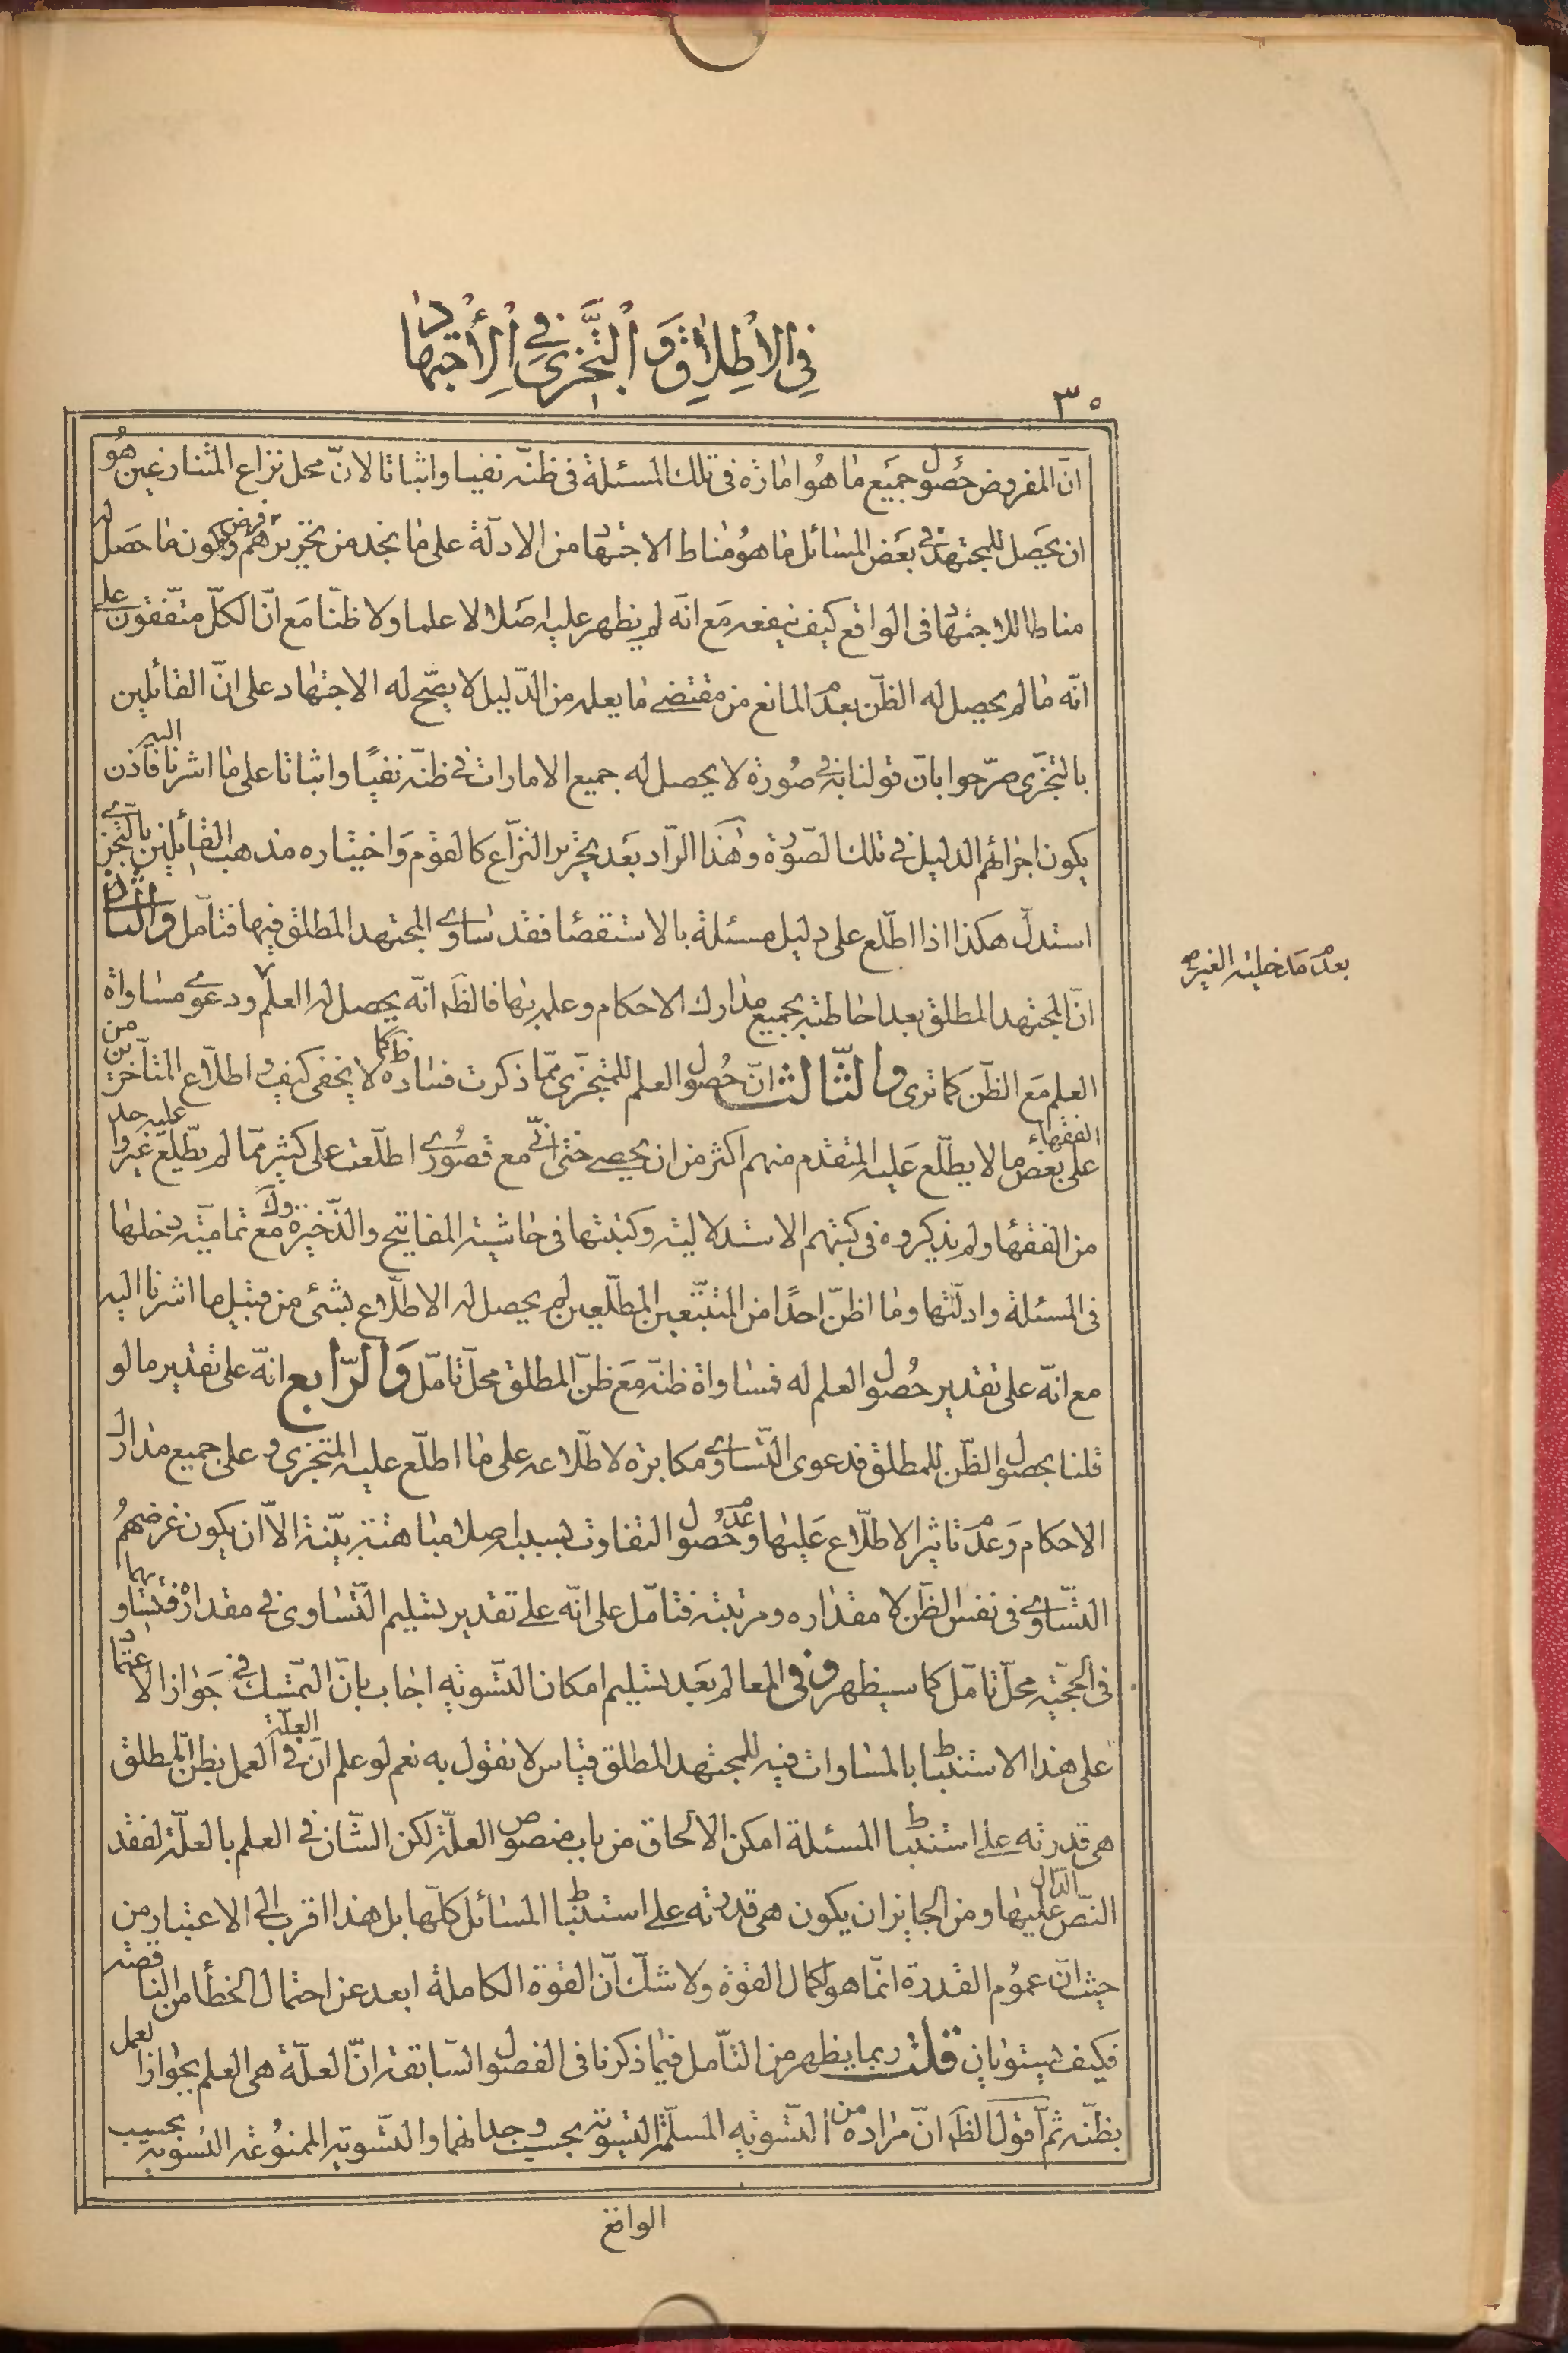 في الاطلاق والتجزي في الاجتهاد
٣٠
انّ المفروض حصول جميع ما هو امارة فى تلك المسئلة فى ظنّه نفيا واثباتا لانّ محل نزاع المتنازعين هو
ان يحصل للمجتهد في بعض المسائل ما هو مناط الاجتهاد من الادلّة على ما نجد من تحريرهم وفرض كون ما حصل له
مناطا للاجتهاد فى الواقع كيف ينفعه مع انّه لم يظهر عليه اصلا لا علما ولا ظنّا مع انّ الكلّ متّفقون على
انّه ما لم يحصل له الظنّ بعدم المانع من مقتضى ما يعلمه من الدّليل لا يصّح له الاجتهاد على انّ القائلين
بالتجزّى صرّحوا بانّ قولنا به في صورة لا يحصل له جميع الامارات في ظنّه نفيًا واثباتا على ما اشرنا اليه فاذن
يكون اجرائهم الدليل في تلك الصّورة وهذا الرّاد بعد تحرير النزّاع كالقوم واختياره مذهب القائلين بالتجزّى
استدلّ هكذا اذا اطّلع على دليل مسئلة بالاستقصا فقد ساوى المجتهد المطلق فيها فتامّل والثّانى
انّ المجتهد المطلق بعد احاطته بجميع مدارك الاحكام وعلمه بها فالظّه انّه يحصل له العلم ودعوى مساواة
بعدم مدخلية الغير صح
العلم مع الظّن كما ترى والثّالث انّ حصول العلم للمتجزّى ممّا ذكرت فساده ظ كما لا يخفى كيف واطلّاع المتأخرين من
الفقهاء على بعض ما لا يطلّع عليه المتقدم منهم اكثر من ان يحصى حتى انّى مع قصورى اطلّعت على كثير ممّا لم يطّلع عليه جلّ غيروا
من الفقها ولم يذكروه فى كتبهم الاستدلالية وكتبتها فى حاشية المفاتيح والذّخيرة وك مع تماميّة دخلها
فى المسئلة وادلّتها وما اظنّ احدًا من المتتبّعين المطلّعين لم يحصل له الاطلّاع بشئ من قبيل ما اشرنا اليه
مع انّه على تقدير حصول العلم له فمساواة ظنّه مع ظنّ المطلق محلّ تامّل والرّابع انّه على تقدير ما لو
قلنا بحصول الظّن للمطلق فدعوى التّساوى مكابرة لاطّلاعه على ما اطلّع عليه المتجزى وعلى جميع مدارك
الاحكام وعدم تاثير الاطلّاع عليها وعدم حصول التفاوت بسببه اصلا مباهتة بيّنة الاّ ان يكون غرضهم
التّساوى فى نفس الظّن لا مقداره ومرتبته فتامّل على انّه على تقدير تسليم التّساوى في مقداره فتساويهما
فى الحجّية محلّ تامّل كما سيظهر وفى المعالم بعد تسليم امكان التسّويه اجاب بانّ التمّسك في جواز الاعتماد
على هذا الاستنباط بالمساوات فيه للمجتهد المطلق قياس لا نقول به نعم لو علم انّ العلّة في العمل بظنّ المطلق
هى قدرته على استنباط المسئلة امكن الالحاق من باب منصوص العلّة لكن الشّان في العلم بالعلّة لفقد
النّص الدّال عليها ومن الجايز ان يكون هى قدرته على استنباط المسائل كلّها بل هذا اقرب الى الاعتبار من
حيث انّ عموم القدرة انّما هو لكمال القوّة ولا شكّ انّ القوّة الكاملة ابعد عن احتمال الخطأ من الناقصة
فكيف يستويان قلت ربما يظهر من التامّل فيما ذكرنا فى الفصول السّابقة انّ العلّة هى العلم بجواز العمل
بظنّه ثمّ اقول الظّه انّ مراده من التّسويه المسلّمة التسوية بحسب وجدانهما والتّسوية الممنوعة التسوية بحسب
الواقع